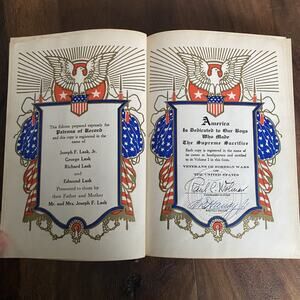 This Edition prepared expressly for
Patrons of Record
and this copy is registered in the
name of
Joseph F. Lask, Jr.
George Lask
Richard Lask
and
Edmund Lask
Presented to them by
their Father and Mother
Mr. and Mrs. Joseph F. Lask
America
Is Dedicated to Our Boys
Who Made
The Supreme Sacrifice
Each copy is registered in the name of
its owner at headquarters and certified
to in Volume I in this form.
VETERANS OF FOREIGN WARS
OF THE UNITED STATES